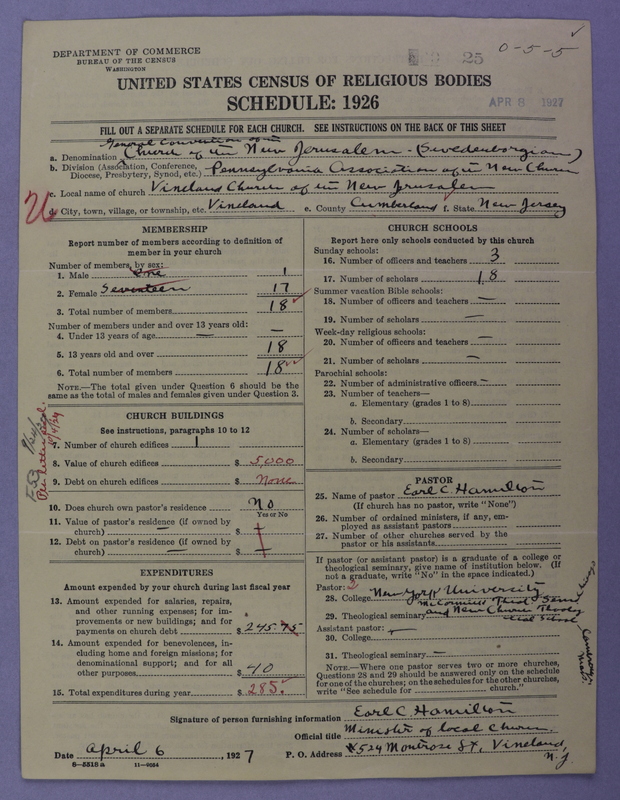 0-5-5
DEPARTMENT OF COMMERCE
BUREAU OF THE CENSUS
WASHINGTON
25
UNITED STATES CENSUS OF RELIGIOUS BODIES
SCHEDULE: 1926
APR 8 1927
FILL OUT A SEPARATE SCHEDULE FOR EACH CHURCH. SEE INSTRUCTIONS ON THE BACK OF THIS SHEET
General Convention of the
a. Denomination Church of the New Jerusalem - (Swedenborgian)
b. Division (Association, Conference, Diocese, Presbytery, Synod, etc.) Pennsylvania Association of the New Church
c. Local name of church Vineland Church of the New Jerusalem
d. City, town, village, or township, etc. Vineland e. County Cumberland f. State New Jersey
MEMBERSHIP
Report number of members according to definition of
member in your church
Number of members, by sex:
1. Male One 1
2. Female Seventeen 17
3. Total number of members 18
Number of members under and over 13 years old:
4. Under 13 years of age — —
5. 13 years old and over 18
6. Total number of members 18
NOTE.—The total given under Question 6 should be the
same as the total of males and females given under Question 3.
CHURCH BUILDINGS
See instructions, paragraphs 10 to 12
7. Number of church edifices 1
8. Value of church edifices $ 5,000
9. Debt on church edifices $ None
10. Does church own pastor's residence No
Yes or No
11. Value of pastor's residence (if owned by
church) — $
12. Debt on pastor's residence (if owned by
church) — $
EXPENDITURES
Amount expended by your church during last fiscal year
13. Amount expended for salaries, repairs,
and other running expenses; for im-
provements or new buildings; and for
payments on church debt $ 245.75
14. Amount expended for benevolences, in-
cluding home and foreign missions; for
denominational support; and for all
other purposes $ 40
15. Total expenditures during year $ 285.
CHURCH SCHOOLS
Report here only schools conducted by this church
Sunday schools:
16. Number of officers and teachers 3
17. Number of scholars 18
Summer vacation Bible schools:
18. Number of officers and teachers —
19. Number of scholars —
Week-day religious schools:
20. Number of officers and teachers —
21. Number of scholars —
Parochial schools:
22. Number of administrative officers —
23. Number of teachers—
a. Elementary (grades 1 to 8)
b. Secondary
24. Number of scholars—
a. Elementary (grades 1 to 8)
b. Secondary
PASTOR
25. Name of pastor Earl C Hamilton
(If church has no pastor, write "None")
26. Number of ordained ministers, if any, em-
ployed as assistant pastors
27. Number of other churches served by the
pastor or his assistants
If pastor (or assistant pastor) is a graduate of a college or
theological seminary, give name of institution below. (If
not a graduate, write "No" in the space indicated.)
Pastor: 2
28. College New York University
29. Theological seminary and New Church Theolog
ical School
Cambridge
Mass.
Assistant pastor: —
30. College
31. Theological seminary —
NOTE.—Where one pastor serves two or more churches,
Questions 28 and 29 should be answered only on the schedule
for one of the churches; on the schedules for the other churches,
write "See schedule for church."
Signature of person furnishing information Earl C Hamilton
Official title Minister of local Church
Date April 6, 1927 P. O. Address 524 Montrose St, Vineland,
N. J.
8-5518a 11-9054